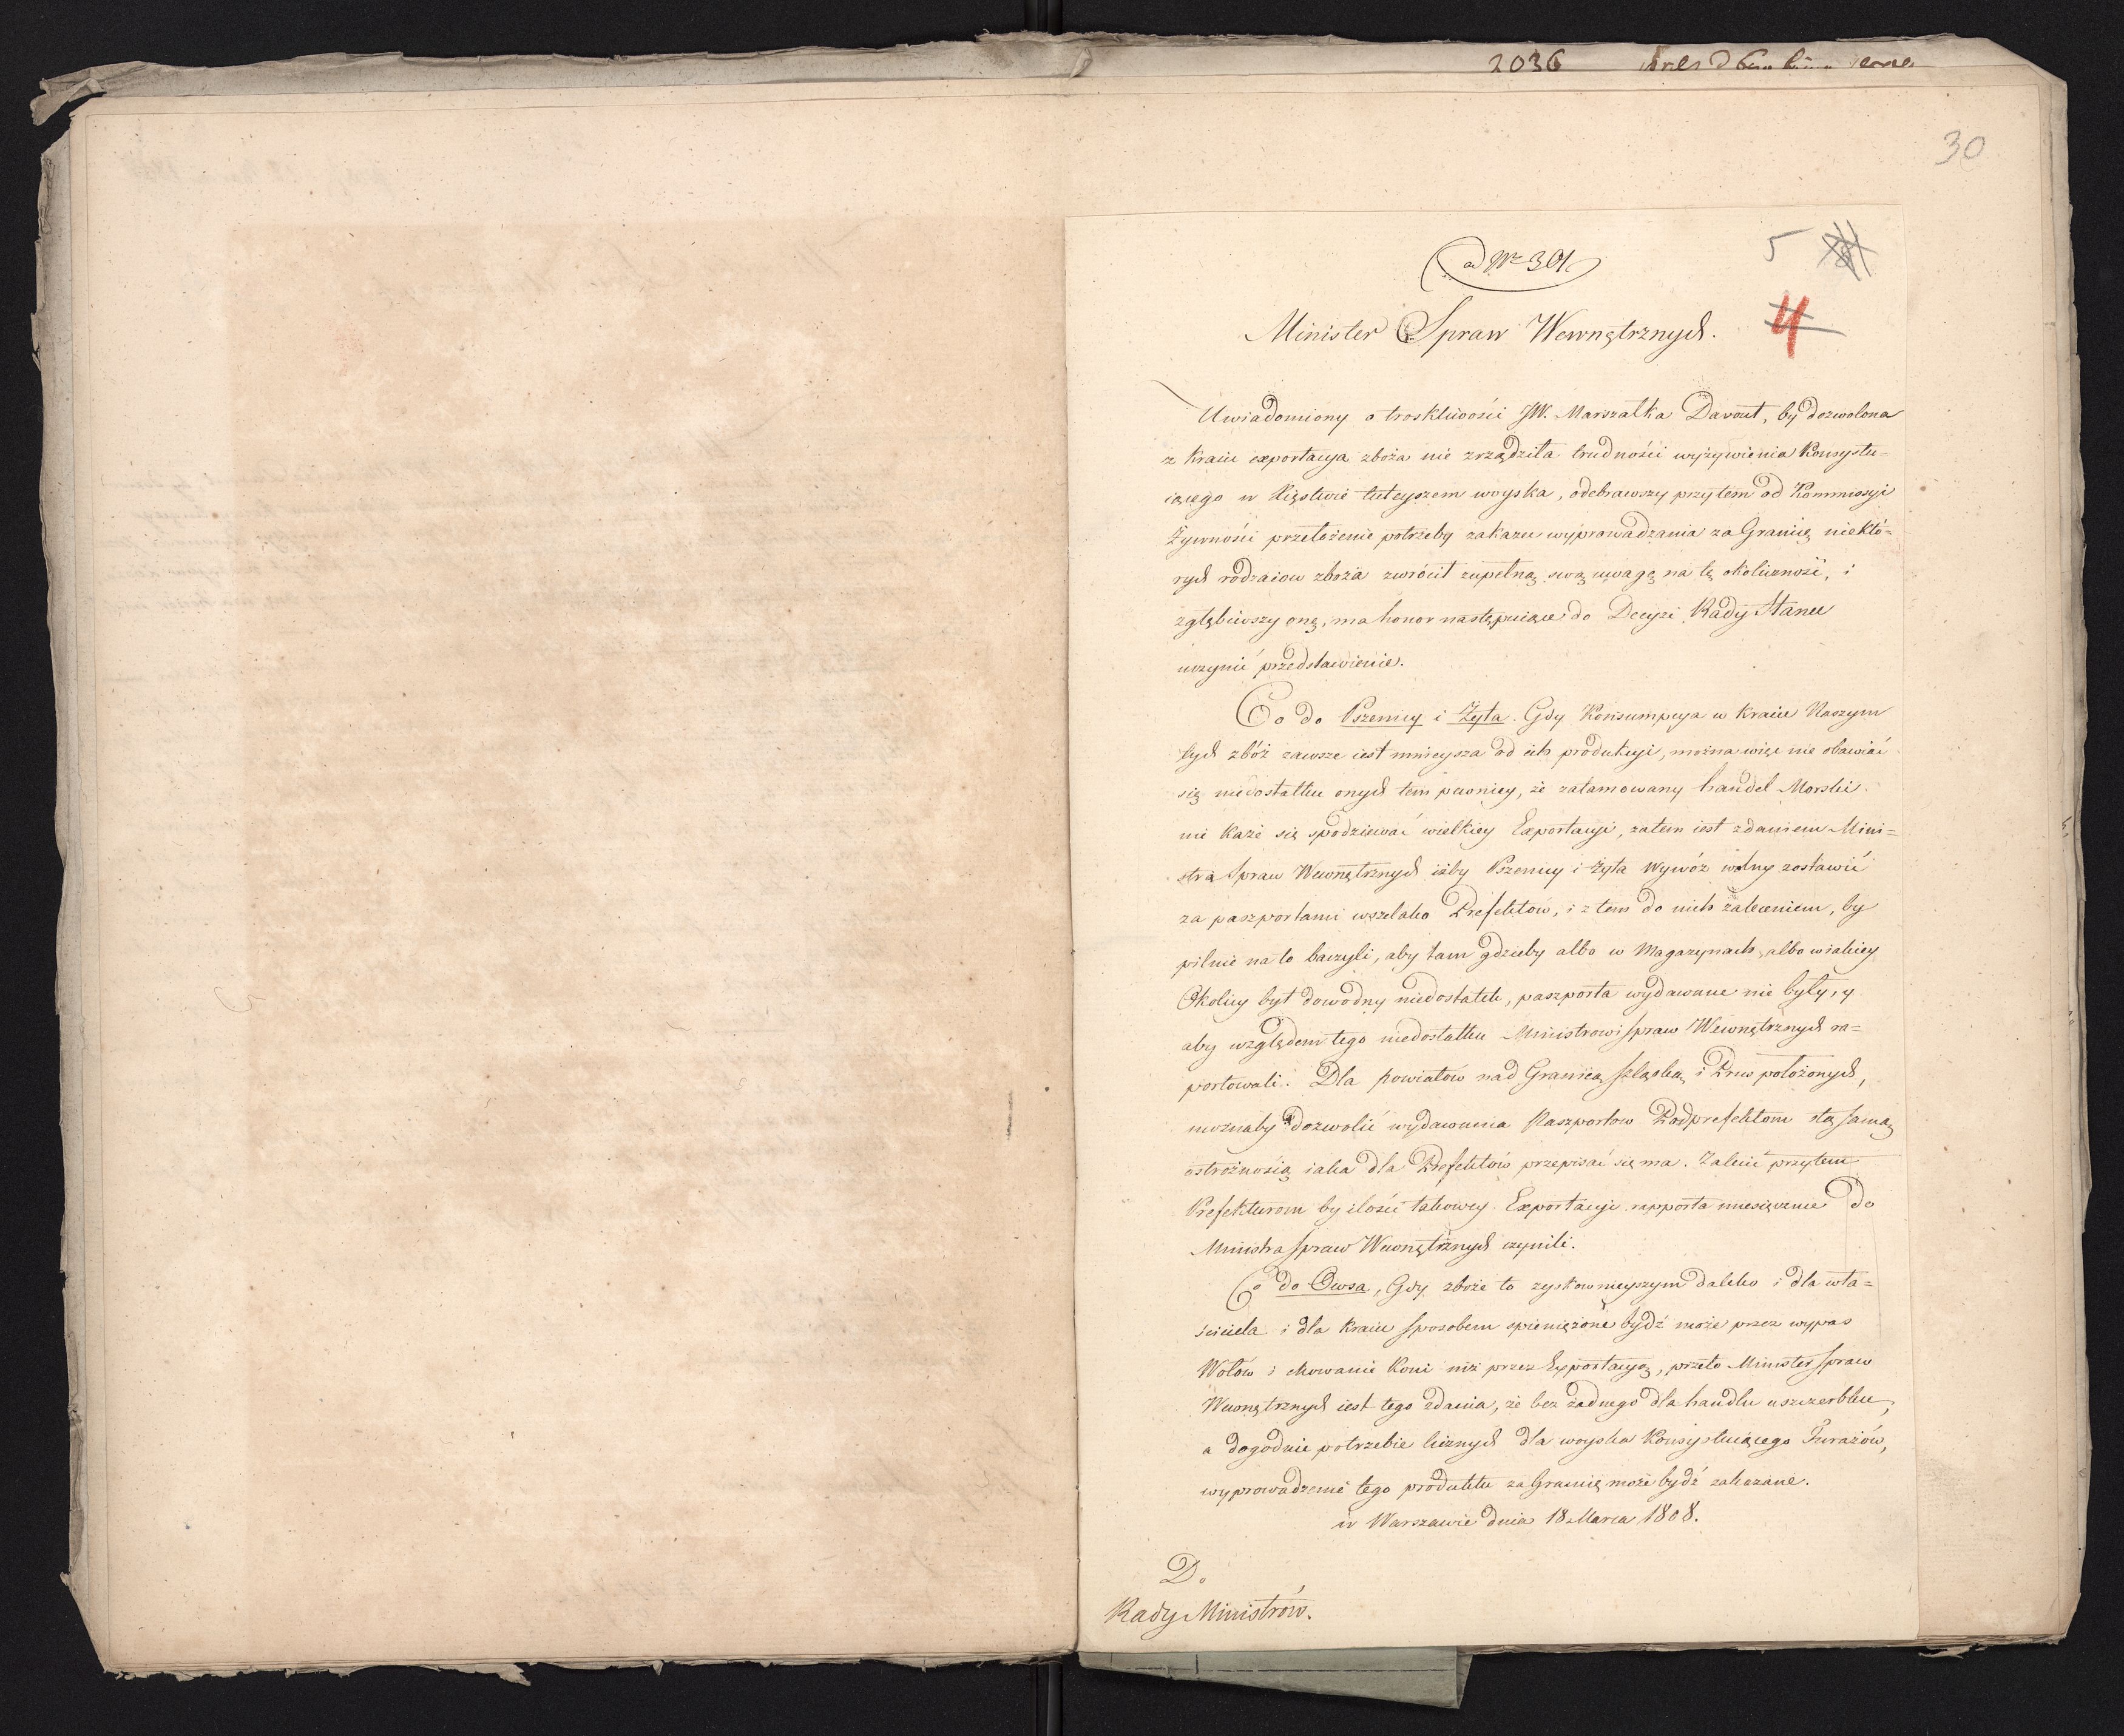 2036
30
5
ad Nr 301
4
Minister Spraw Wewnętrznych.
Uwiadomiony o troskliwości JW. Marszałka Davout, by dozwolona
z kraiu exportacya zboża nie zrządziła trudności wyżywienia konsystu=
iącego w Xięstwie tuteyszem woyska, odebrawszy przytem od Kommissyi
Żywności przełożenie potrzeby zakazu wyprowadzania za Granicę niektó=
rych rodzaiow zboża zwrócił zupełną swą uwagę na tę okoliczność, i
zgłębiwszy onę, ma honor następuiące do Decyzi Rady Stanu
uczynić przedstawienie.
Co do Pszenicy i Żyta. Gdy Konsumpcya w kraiu Naszym
tych zbóż zawsze iest mnieysza od ich produkcyi, można więc nie obawiać
się niedostatku onych tem pewniey, że zatamowany handel Morski
nie każe się spodziewać wielkiey Exportacyi, zatem iest zdaniem Mini=
stra Spraw Wewnętrznych iżby Pszenicy i żyta wywóz wolny zostawić
za paszportami wszelako Prefektow, i z tem do nich zaleceniem, by
pilnie na to baczyli, aby tam gdzieby albo w Magazynach, albo w iakiey
Okolicy był dowodny niedostatek, paszporta wydawane nie były, y
aby względem tego niedostatku Ministrowi Spraw Wewnętrznych ra=
portowali. Dla powiatow nad Granicą Szląską i Prus położonych,
możnaby dozwolić wydawania Paszportow Podprefektom z tą samą
ostrożnością iaka dla Prefektów przepisać się ma. Zalecić przytem
Prefekturom by ilości takowey Exportacyi rapporta miesięczne do
Ministra Spraw Wewnętrznych czynili.
Co do Owsa, Gdy zboże to zyskownieyszym daleko i dla wła=
ściciela i dla kraiu sposobem spieniężone bydź może przez wypas
Wołów i chowanie Koni niż przez Exportacyą, przeto Minister Spraw
Wewnętrznych iest tego zdania, że bez żadnego dla handlu uszczerbku,
a dogodnie potrzebie licznych dla woyska konsystuiącego Furażów,
wyprowadzenie tego produktu za Granicę może bydź zakazane.
w Warszawie dnia 18 Marca 1808.
Do
Rady Ministrów.